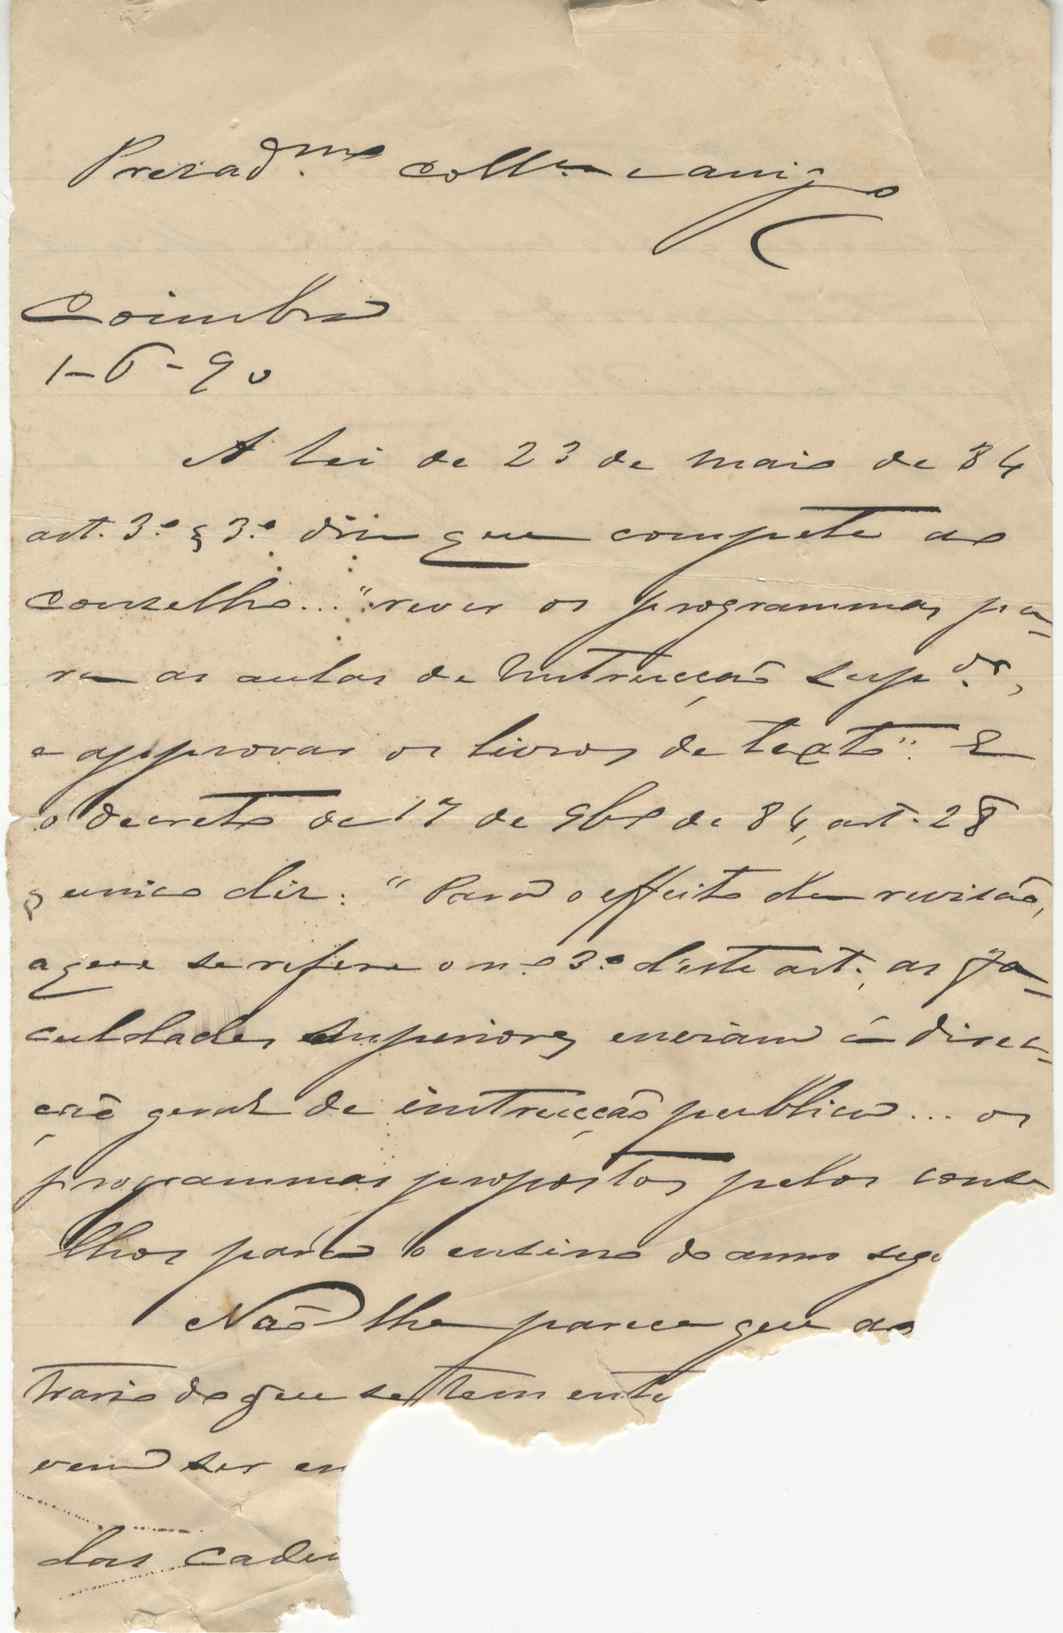 Prezad.mo coll.a e amigo
Coimbra
1-6-90
A lei de 23 de maio de 84
art. 3.º § 3.º diz que compete ao
conselho... "rever os programmas pa-
ra as aulas de Instrucção sup.or,
e approvar os livros de texto". E
o decreto de 17 de 9bro de 84, art. 28
§ unico diz: "Para o effeito da revisão,
a que se refere o n.º 3.º d'este art., as Fa-
culdades superiores enviam á direc-
ção geral de instrucção publica... os
programmas propostos pelos conse
lhos para o ensino do anno seg
Não lhe parece que ao
trario do que se tem ente
vem ser en
das cadei